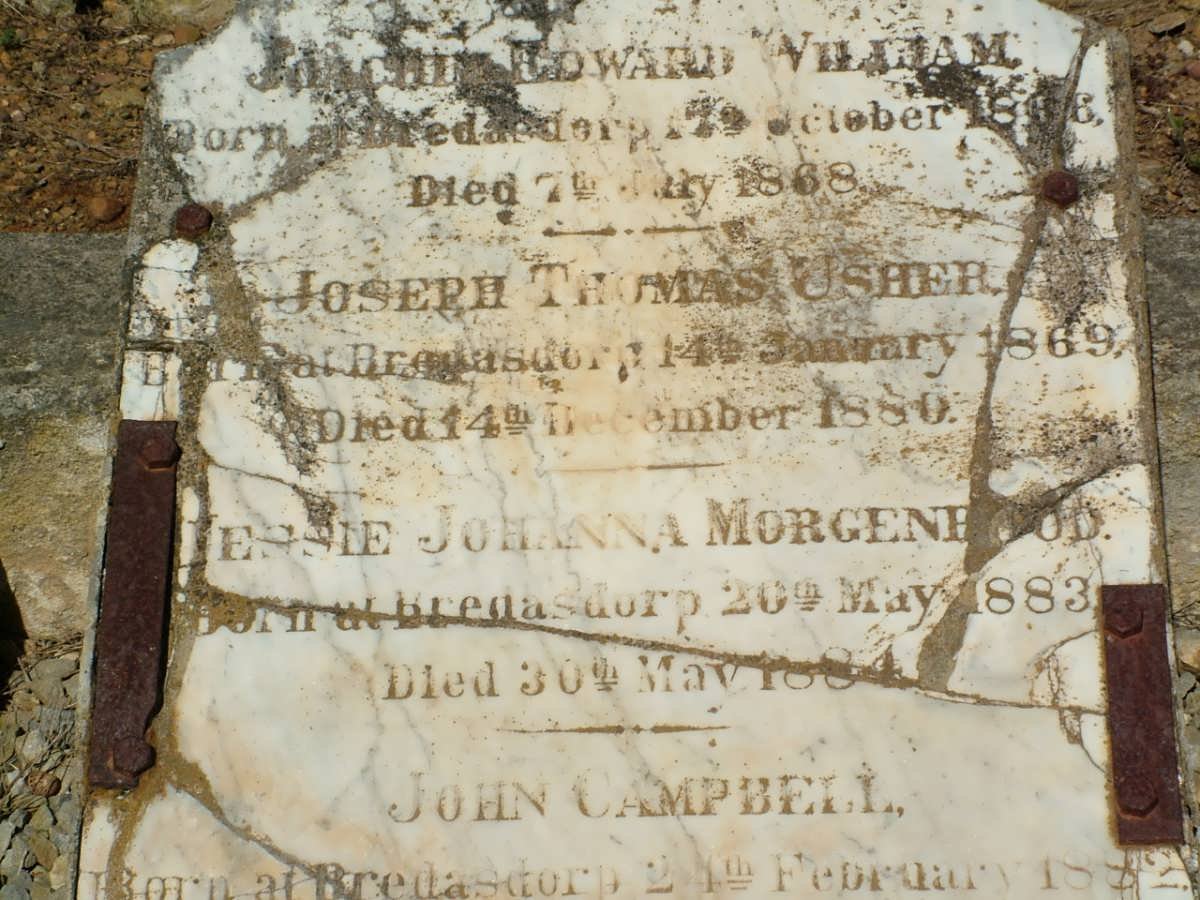 JOACHIM EDWARD WILLIAM.
Born at Bredasdorp 17th October 1866.
Died 7th July 1868.
JOSEPH THOMAS USHER.
Born at Bredasdorp 14th January 1869.
Died 14th December 1880.
JESSIE JOHANNA MORGENROOD.
Born at Bredasdorp 20th May 1883.
Died 30th May 1884.
JOHN CAMPBELL,
Born at Bredasdorp 24th February